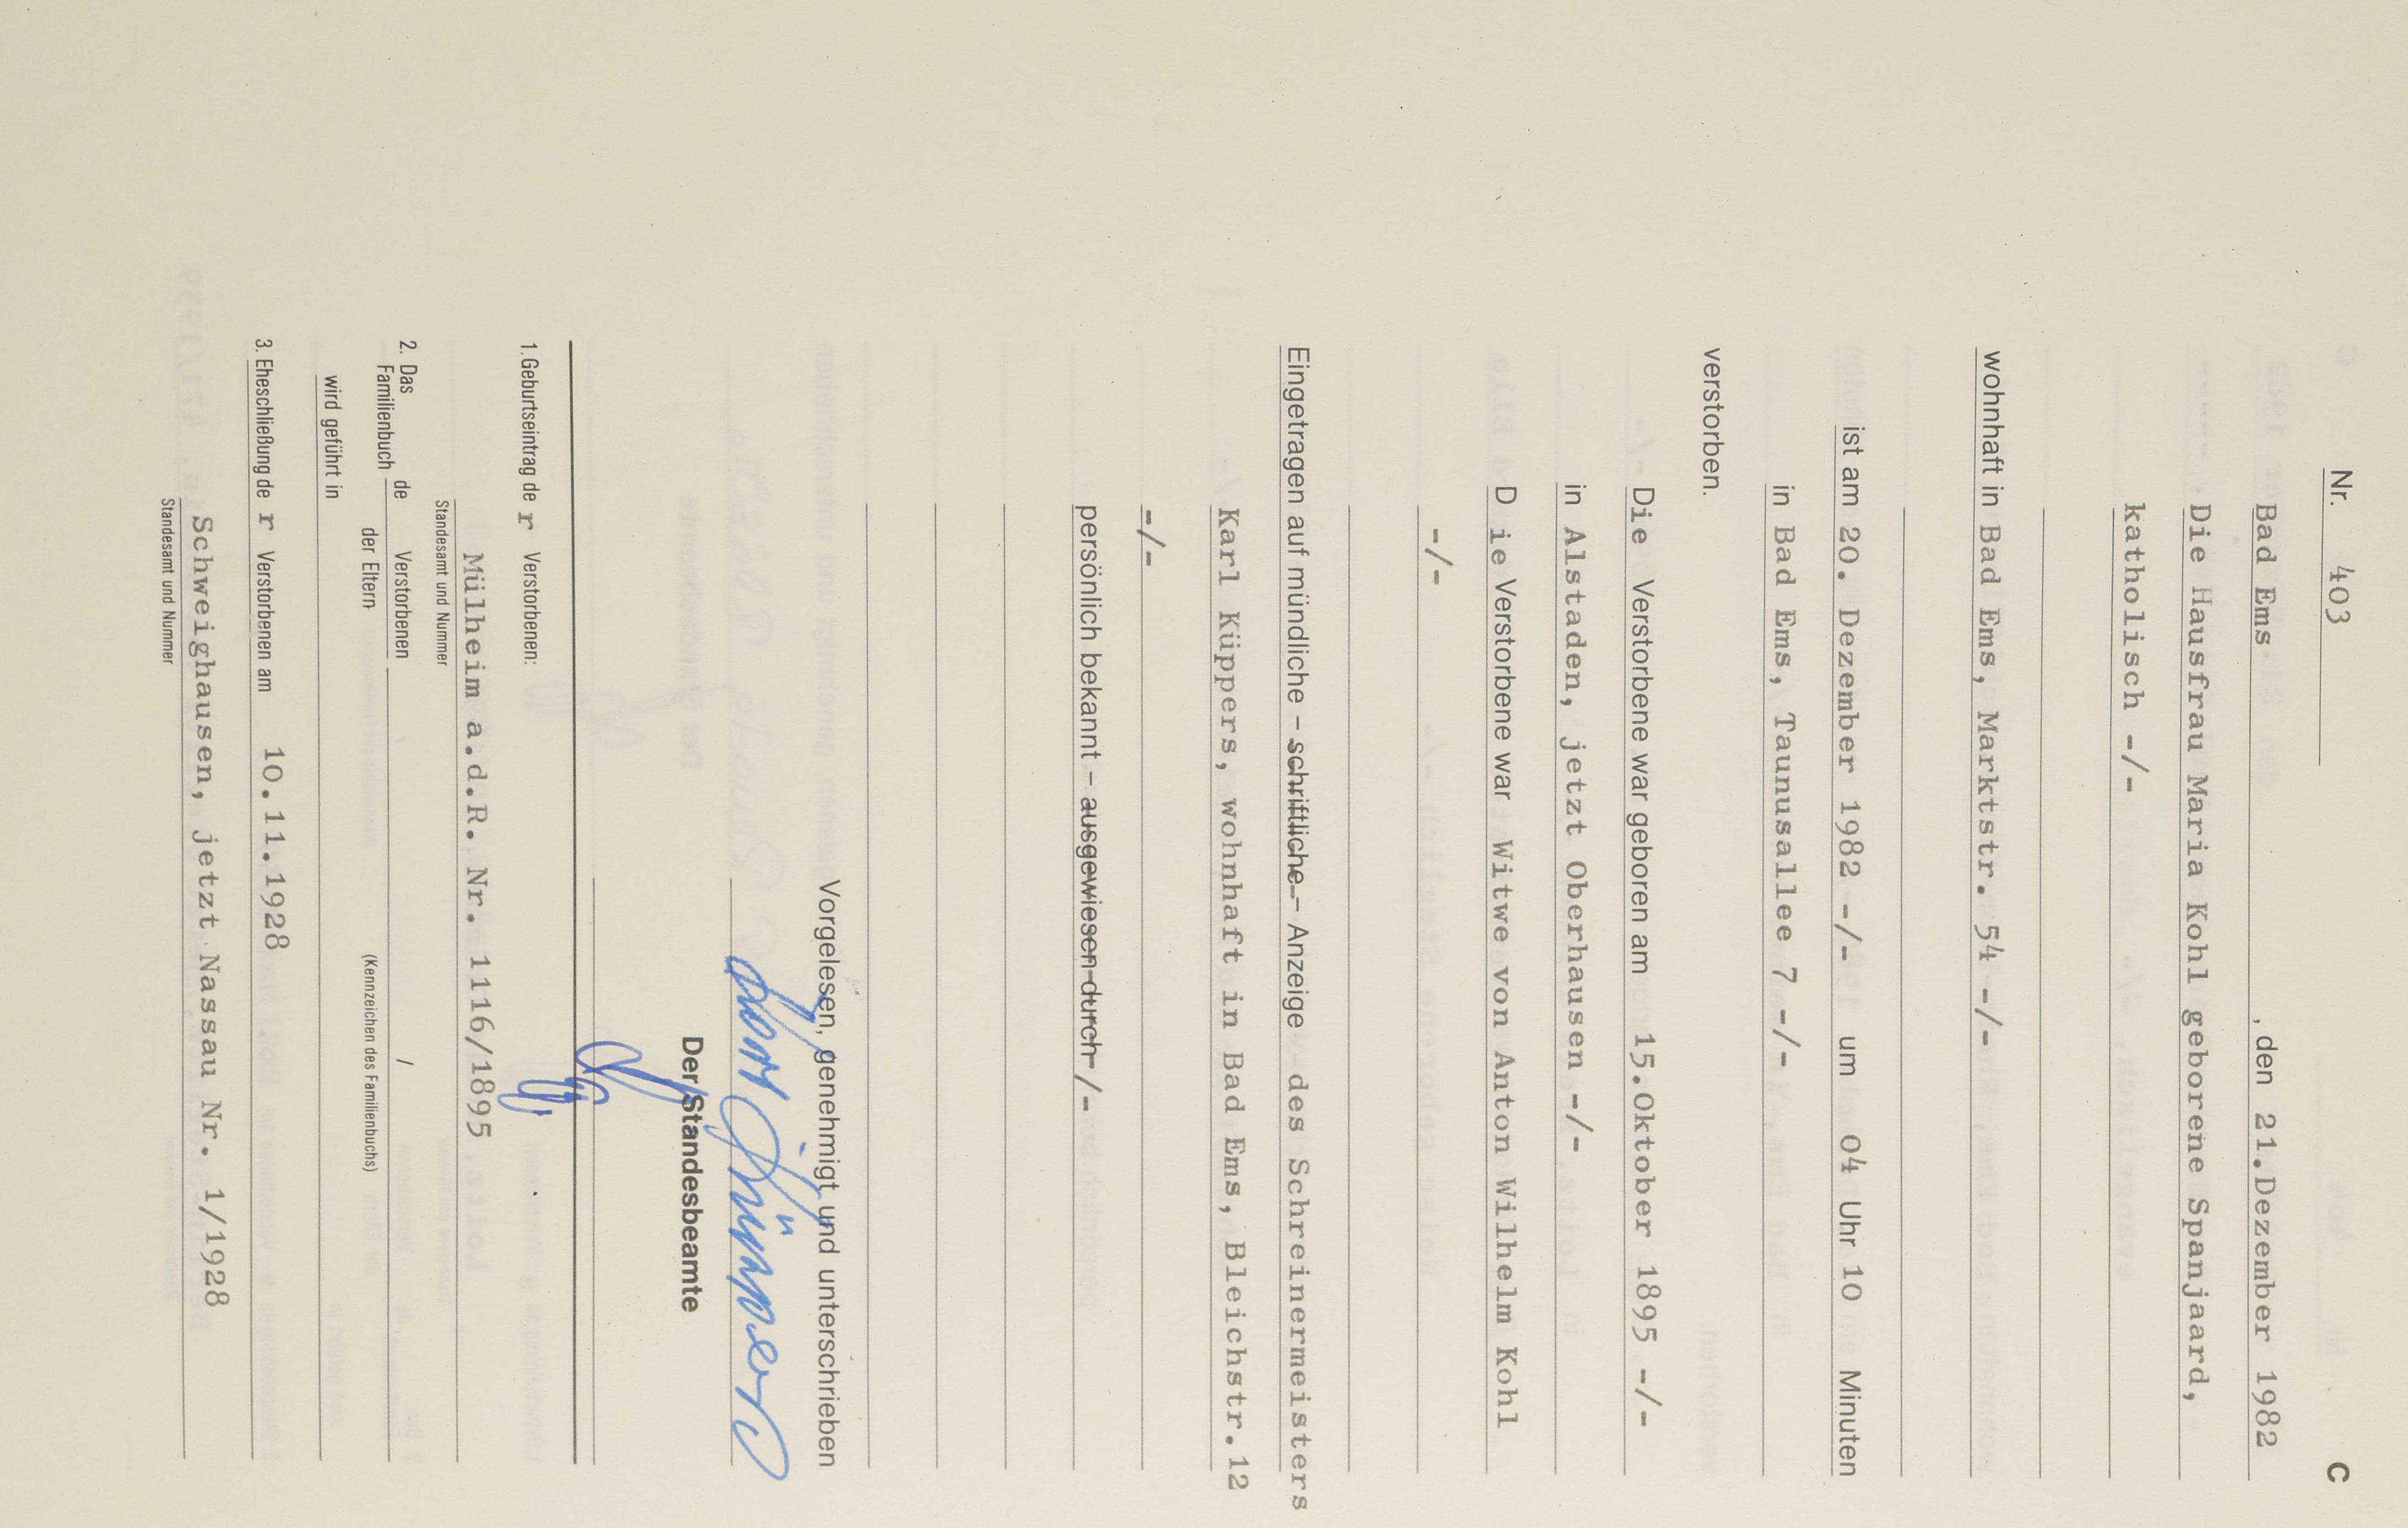 Nr. 403 C
Bad Ems , den 21.Dezember 1982
Die Hausfrau Maria Kohl geborene Spanjaard,
katholisch -/-
wohnhaft in Bad Ems, Marktstr. 54 -/-
ist am 20. Dezember 1982 -/- um 04 Uhr 10 Minuten
in Bad Ems, Taunusallee 7 -/-
verstorben.
Die Verstorbene war geboren am 15.Oktober 1895 -/-
in Alstaden, jetzt Oberhausen -/-
D ie Verstorbene war Witwe von Anton Wilhelm Kohl
-/-
Eingetragen auf mündliche – schriftliche – Anzeige des Schreinermeisters
Karl Küppers, wohnhaft in Bad Ems, Bleichstr.12
-/-
persönlich bekannt – ausgewiesen durch -/-
Vorgelesen, genehmigt und unterschrieben
Karl Küppers
Der Standesbeamte
1. Geburtseintrag de r Verstorbenen:
Mülheim a.d.R. Nr. 1116/1895
Standesamt und Nummer
2. Das Familienbuch de Verstorbenen /
der Eltern (Kennzeichen des Familienbuchs)
wird geführt in
3. Eheschließung de r Verstorbenen am 10.11.1928
Schweighausen, jetzt Nassau Nr. 1/1928
Standesamt und Nummer